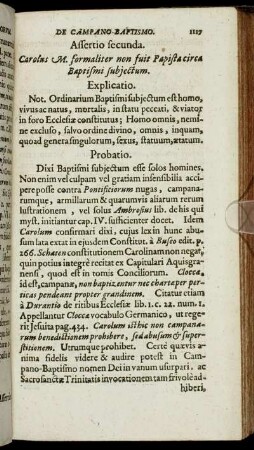 DE CAMPANO-BAPTISMO. 1127
Assertio secunda.
Carolus M. formaliter non fuit Papista circa
Baptismi subjectum.
Explicatio.
Not. Ordinarium Baptismi subjectum est homo,
vivus ac natus, mortalis, in statu peccati, & viator
in foro Ecclesiæ constitutus; Homo omnis, nemi-
ne excluso, salvo ordine divino, omnis, inquam,
quod genera singulorum, sexus, statuum, ætatum.
Probatio.
Dixi Baptismi subjectum esse solos homines.
Non enim vel culpam vel gratiam insensibilia acci-
pere posse contra Pontificiorum nugas, campana-
rumque, armillarum & quarumvis aliarum rerum
lustrationem, vel solus Ambrosius lib. de his qui
myst. initiantur cap. IV. sufficienter docet. Idem
Carolum confirmari dixi, cujus lex in hunc abu-
sum lata extat in ejusdem Constitut. à Buseo edit. p.
266. Schaten constitutionem Carolinam non negat,
quin potius integrè recitat ex Capitulari Aquisgra-
nensi, quod est in tomis Conciliorum. Cloccæ,
id est, campanæ, non baptizentur nec chartæ per per-
ticas pendeant propter grandinem. Citatur etiam
à Durantio de ritibus Ecclesiæ lib. 1. c. 22. num. 1.
Appellantur Cloccæ vocabulo Germanico, ut rege-
rit Jesuita pag. 434. Carolum isthic non campana-
rum benedictionem prohibere, sed abusum & super-
stitionem. Utrumque prohibet. Certè quævis a-
nima fidelis videre & audire potest in Cam-
pano-Baptismo nomen Dei in vanum usurpari, ac
Sacrosanctæ Trinitatis invocationem tam frivolè ad-
hiberi,